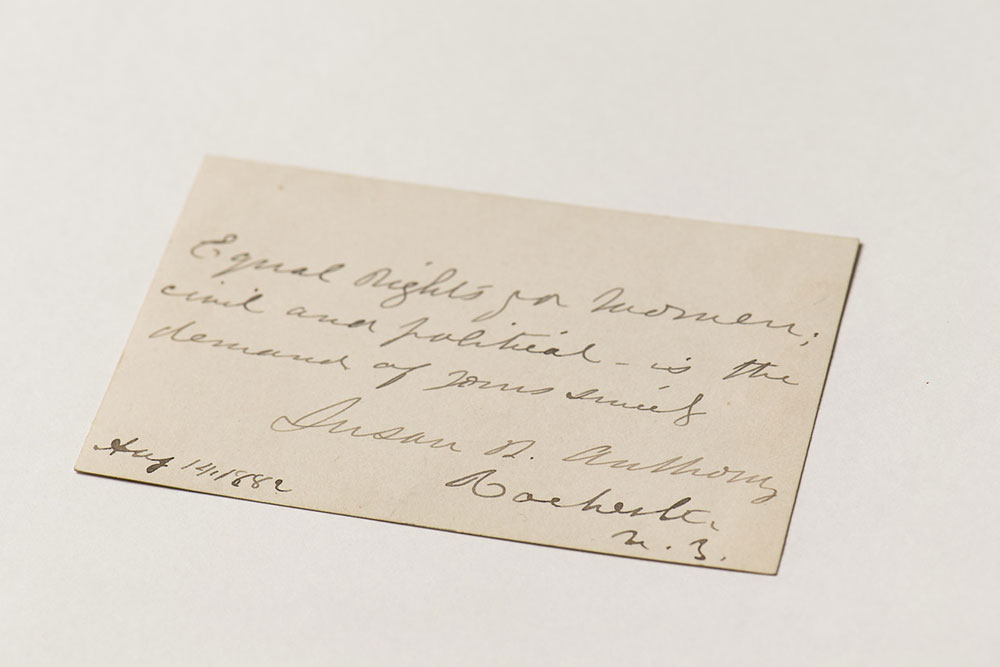 Equal Rights for Women;
civil and political - is the
demand of yours sincerely
Susan B. Anthony
Rochester
N. Y.
Aug 14, 1882